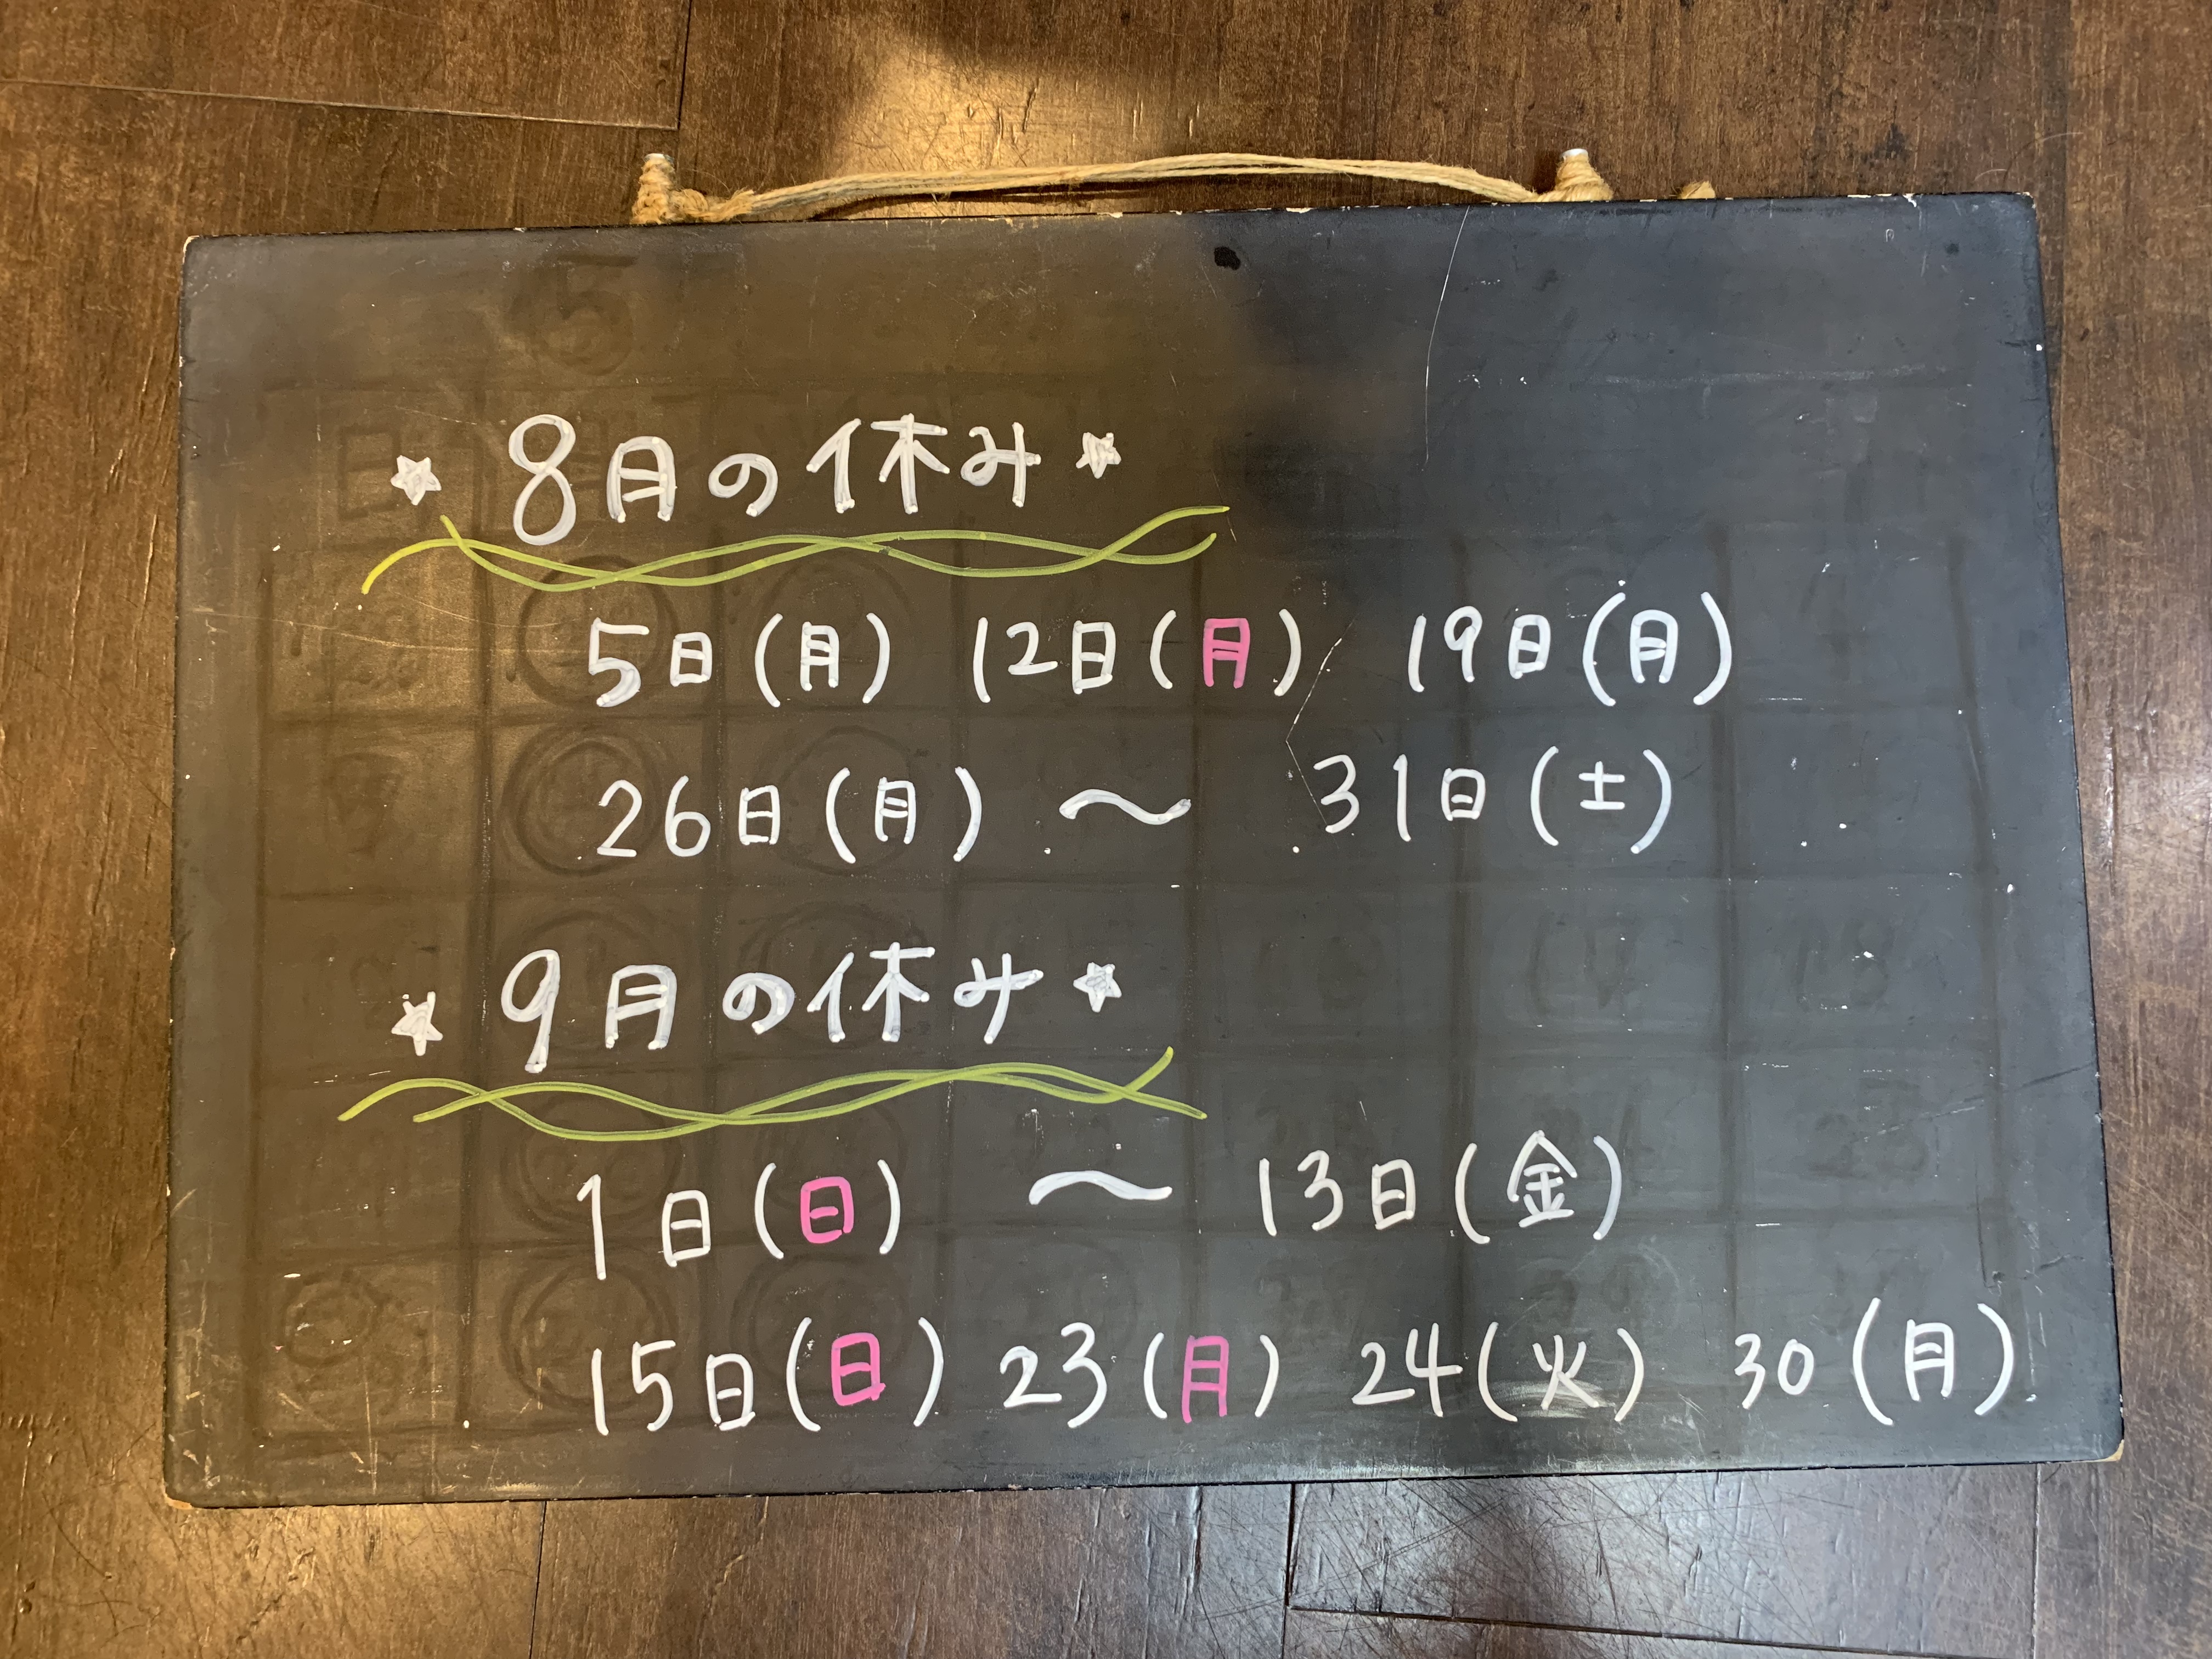 ☆ 8月の休み ☆
5日(月) 12日(月) 19日(月)
26日(月) 〜 31日(土)
☆ 9月の休み ☆
1日(日) 〜 13日(金)
15日(日) 23(月) 24(火) 30(月)